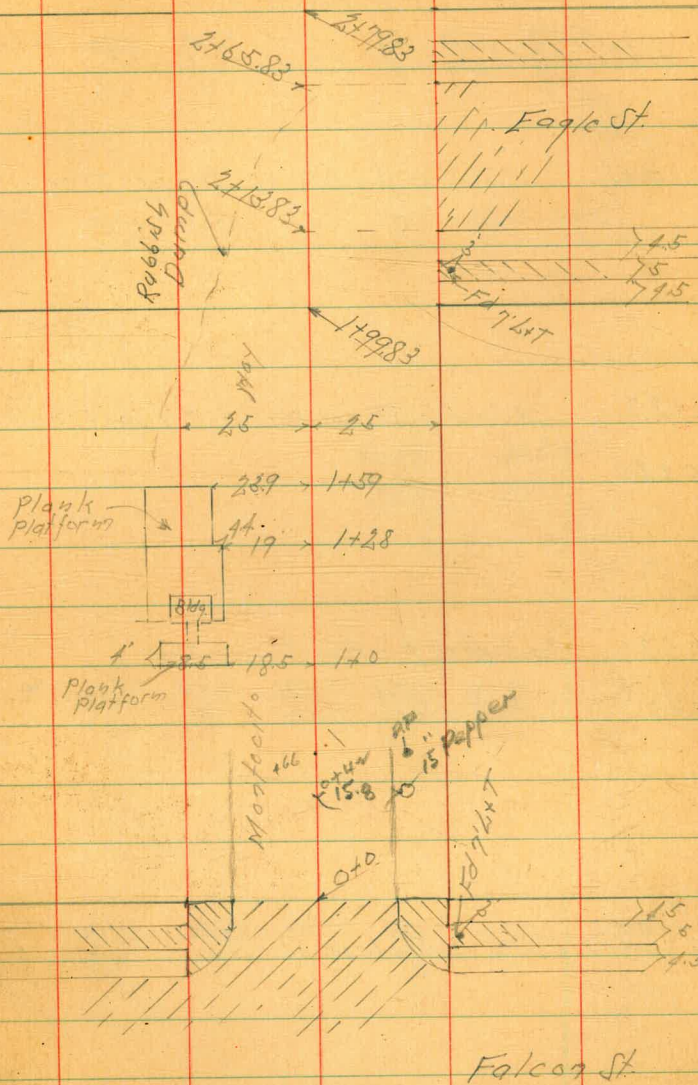 2+79.83
2+65.83
Eagle St.
2+13.83
Rubbish
Dump
4.5
5
4.5
3'
Fd 7' L+T
1+99.83
25 25
23.9 1+59
Plank
Platform
44
19 1+28
Bldg
4' 8.5 18.5 1+0
Plank
Platform
Montecito
+66
0+42
15.8
15" Pepper
Fd 7' L+T
3'
0+0
4.5
5
4.5
Falcon St.